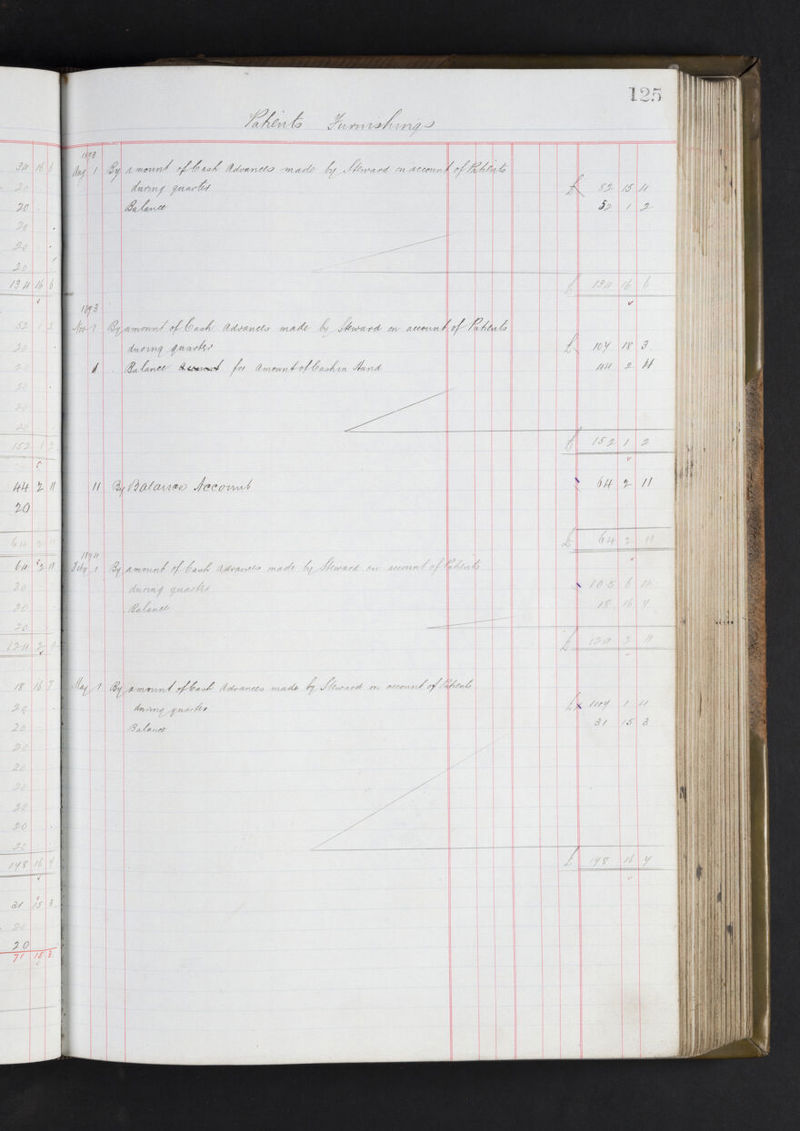 125
Patients Furnishings
34 16 6
20
20
20
20
20
134 16 6
52 1 2
20
20
20
20
20
152 1 2
44 2 11
20
64 2 11
64 2 11
20
20
20
124 2 11
18 16 7
20
20
20
20
20
20
20
20
178 16 7
31 15 3
20
20
71 15 3
1893
Aug 1 By amount of Cash Advances made by Steward on account of Patients
during quarter £ 82 15 4
Balance 52 1 2
£ 134 16 6
1893
Nov 1 By amount of Cash Advances made by Steward on account of Patients
during quarter £ 107 18 3
1 Balance for amount of Cash in Hand 44 2 11
£ 152 1 2
11 By Balance Account 64 2 11
£ 64 2 11
1894
Feby 1 By amount of Cash Advances made by Steward on account of Patients
during quarter 105 6 4
Balance 18 16 7
£ 124 2 11
May 1 By amount of Cash Advances made by Steward on account of Patients
during quarter £ 147 1 4
Balance 31 15 3
£ 178 16 7